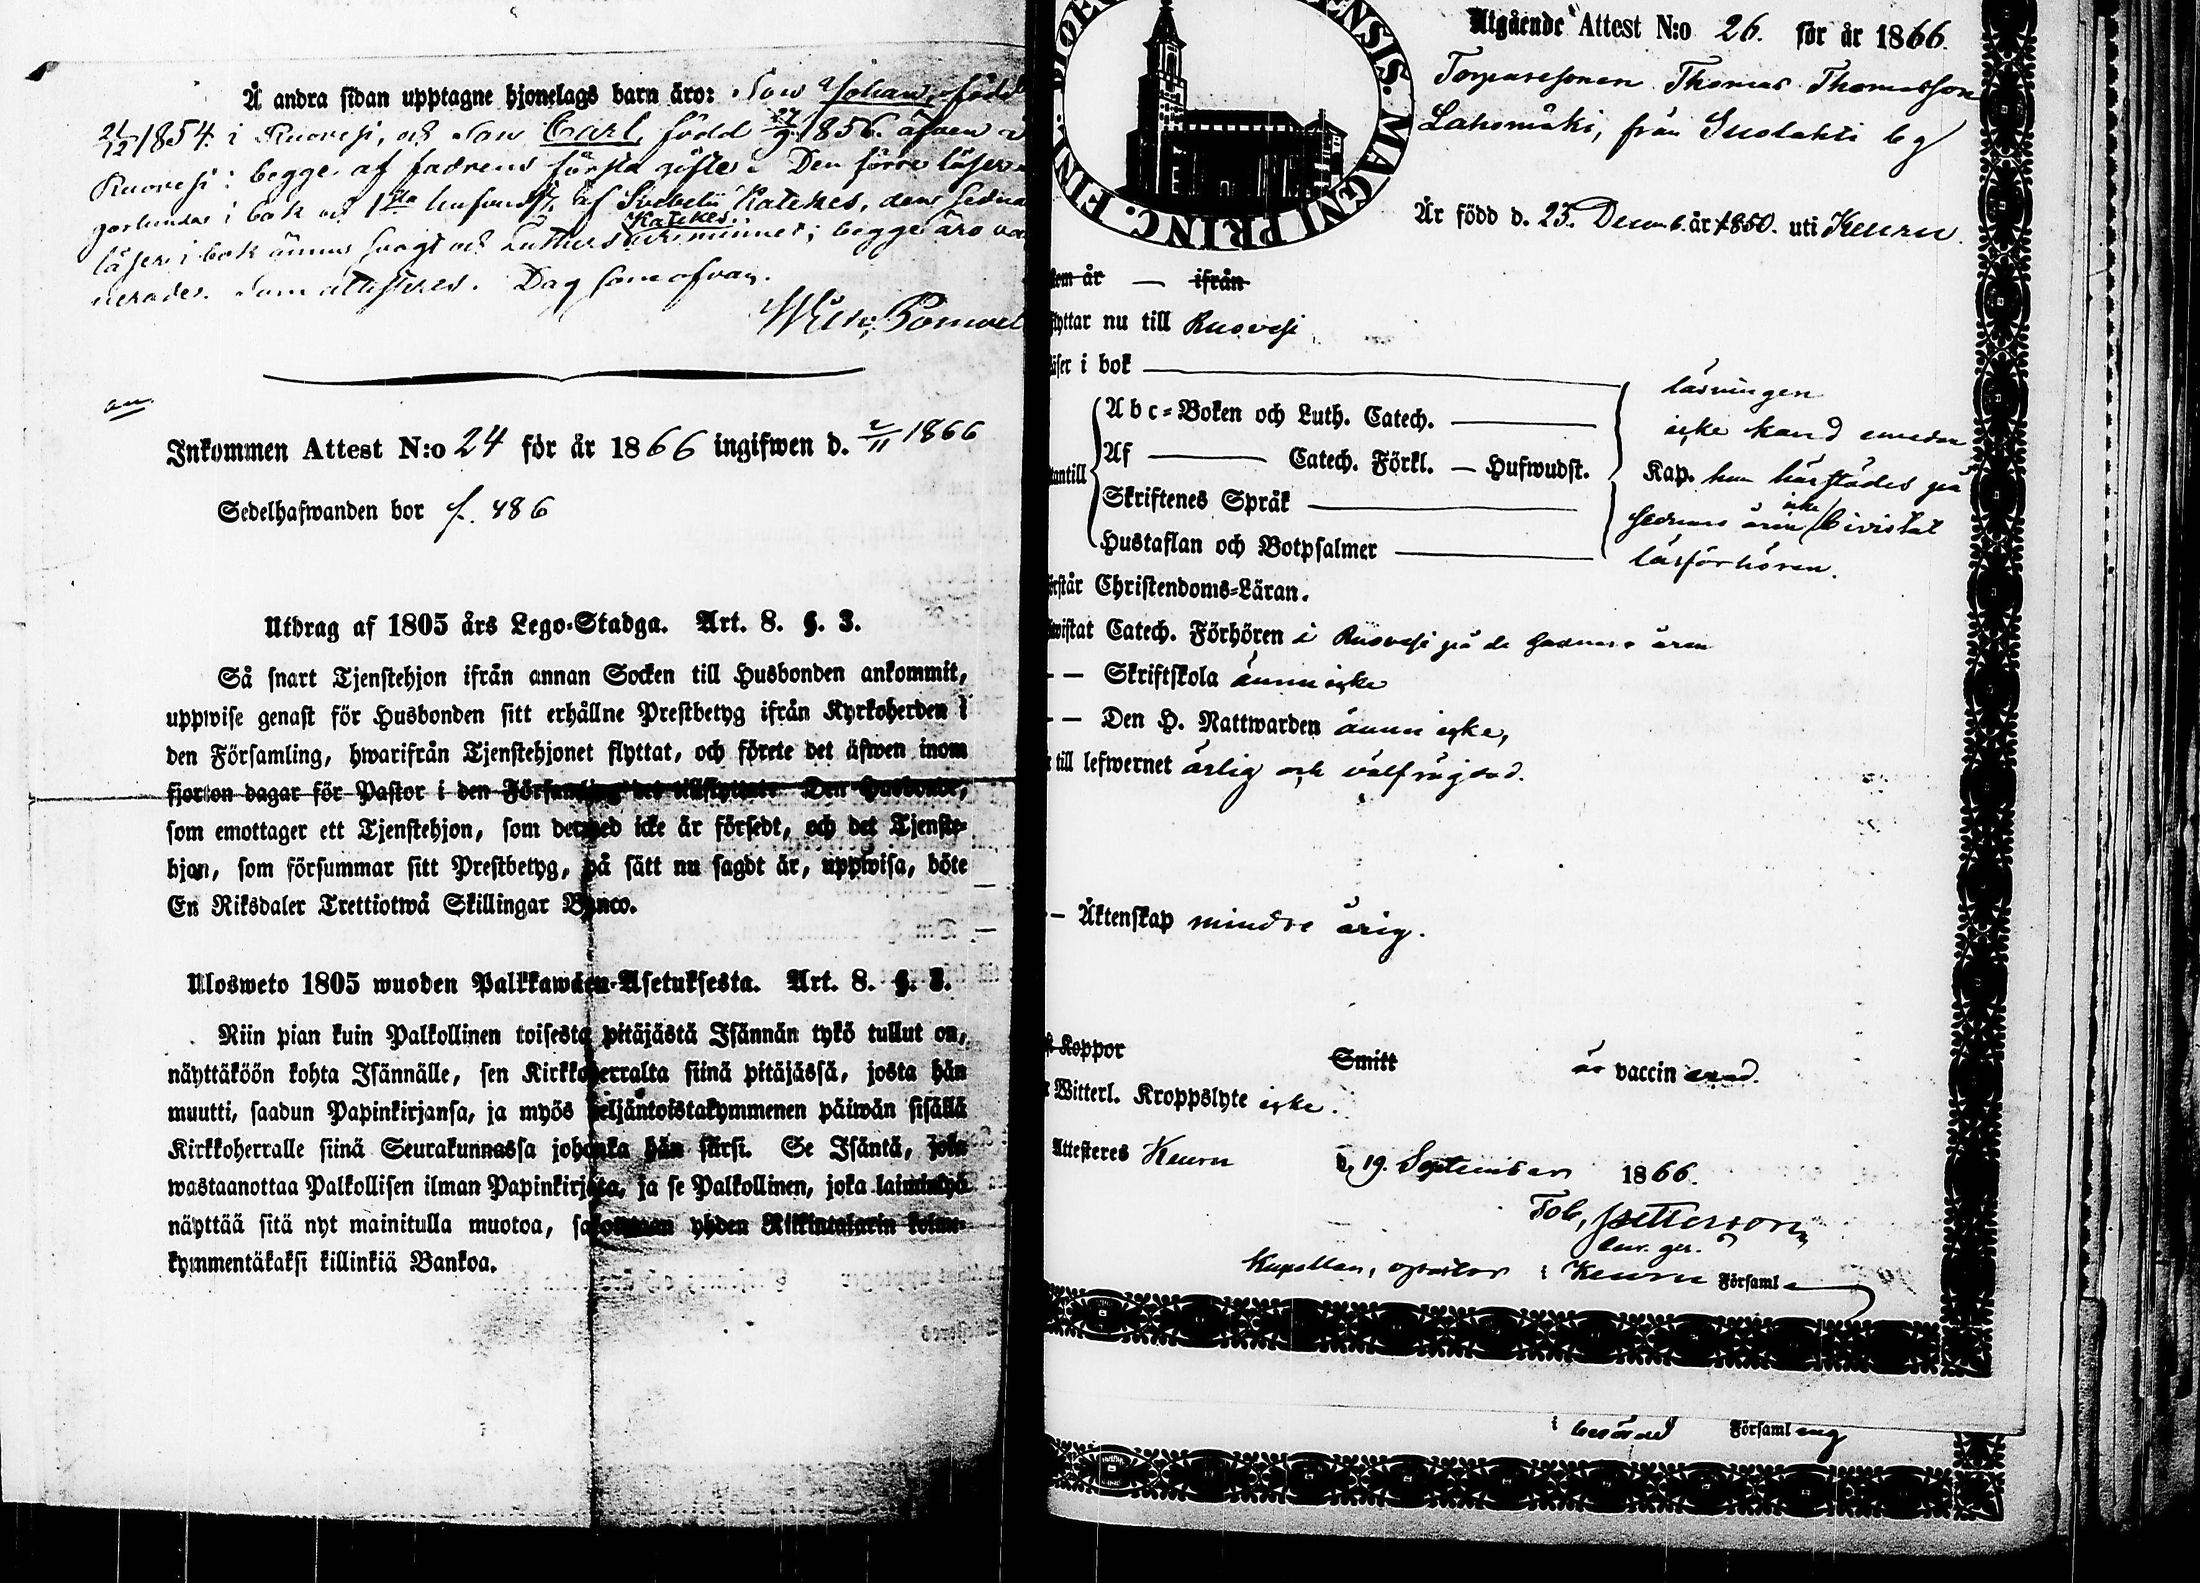 Å andra sidan upptagne hjonelags barn äro: Son Johan, född
21/12 1854 i Ruovesi, och Son Carl, född 27/9 1856 äfven i
Ruovesi: begge af fadrens första gifte. Den förre läser
i bok och 1sta hufvudst. af Svebelii Katekes, den sedna
Katekes
läser i bok ännu svagt och Luthers minnet; begge äro va
nerade. Som attesteras. Dag som ofvan.
Inkommen Attest N:o 24 för år 1866 ingifwen d. 2/11 1866
Sedelhafwanden bor f. 486
Utdrag af 1805 års Lego-Stadga. Art. 8. §. 3.
Så snart Tjenstehjon ifrån annan Socken till Husbonden ankommit,
uppwise genast för Husbonden sitt erhållne Prestbetyg ifrån Kyrkoherden i
den Församling, hwarifrån Tjenstehjonet flyttat, och förete det äfwen inom
fjorton dagar för Pastor i den Församling det tillflyttat. Den Husbonde,
som emottager ett Tjenstehjon, som dermed icke är försedt, och det Tjenste-
hjon, som försummar sitt Prestbetyg, på sätt nu sagdt är, uppwisa, böte
En Riksdaler Trettiotwå Skillingar Banco.
Ulosweto 1805 wuoden Palkkawäen-Asetuksesta. Art. 8. §. 3.
Niin pian kuin Palkollinen toisesta pitäjästä Isännän tykö tullut on,
näyttäköön kohta Isännälle, sen Kirkkoherralta siinä pitäjässä, josta hän
muutti, saadun Papinkirjansa, ja myös neljäntoistakymmenen päiwän sisällä
Kirkkoherralle siinä Seurakunnassa johonka hän siirsi. Se Isäntä, joka
wastaanottaa Palkollisen ilman Papinkirjata, ja se Palkollinen, joka laiminlyö
näyttää sitä nyt mainitulla muotoa, sakotetaan yhden Riikintalarin kolme-
kymmentäkaksi killinkiä Bankoa.
ENSIS. MAGNI PRINC. FINL.
Utgående Attest N:o 26. för år 1866.
Torparesonen Thomas Thomasson
Lahomäki, från Suolahti by
Är född d. 23. Decemb. år 1850. uti Keuru.
kom år — ifrån
flyttar nu till Ruovesi
läser i bok
läsningen
Abc-Boken och Luth. Catech.
icke känd emedan
Af Catech. Förkl. — Hufwudst.
Kap. han härstädes på
utantill
Skriftenes Språk
icke
sednare åren bivistat
Hustaflan och Botpsalmer
läsförhören.
förstår Christendoms-Läran.
bewistat Catech. Förhören i Ruovesi på de sednare åren
— — Skriftskola ännu icke
— — Den H. Nattwarden ännu icke,
till lefwernet ärlig och välfrägdad.
— Äktenskap mindre årig.
Koppor Smitt är vaccinerad.
Witterl. Kroppslyte icke.
Attesteres Keuru d. 19. September 1866.
Tob. Petterson
Kapellan, i Keuru Församl
i berörde Församling